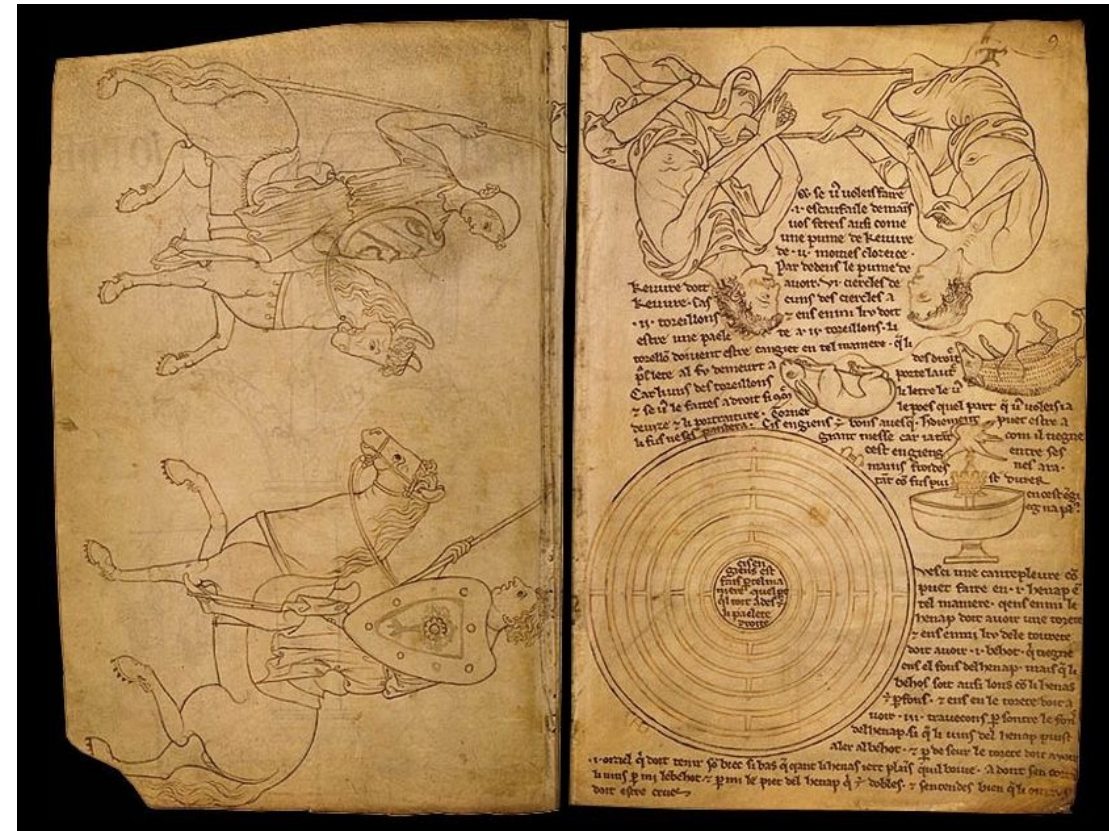 9
& se uͦ uoleis faire
·i· escaufaile de mains
uos fereis ausi come
une pume de keuure
de ·ii· moities clozeice ·
Par dedens le pume de
keuure doit avoir · vi· ciercles de
keuure · cas cuns des ciercles a
·ii· toreillons & ens enmi liv doit
estre une paele te a ·ii· toreillons · li
torellō doivent estre cangiet en tel maniere · q̄ li
demeurt a des droit
Car li uns des toreillons porte l autͤ
& se uͦ le faites a droit si li letre le uͦ
deuize & li portraiture · torner le poes quel part q̄ uͦ uoleis ia
li fus ne ses pandera · Cis engiens ÷ bons a puet estre a
grant messe car ia tāt com il tiegne
cest engieng entre ses
mains froides nes ara ·
tāt cō fus puist durer
en cest
engi
cis en
giens est
fais p tel ma
niere quel pͭ
qͥl tort ades ÷
li paelete
droite
Vesci une cantepleure cō
puet faire en ·i· henap ē
tel maniere · qens enmi le
henap doit avoir une torete
& ens enmi liv dele tourete
doit avoir ·i· behot · q̄ tiegne
ens el fons del henap · mais q̄ li
behos soit ausi lons cō li henas
÷ pfons · & ens en le torete doit a
voir ·iii· travecons p sontre le fon
del henap · si q̄ li uins del henap puist
aler al behot · & p deseur le torete doit avoir
·i· oiziel q̄ doit tenir sō biec si bas q̄ qant li henas iert plains quil boiue · Adont sen
li uins p mi le behot & p mi le piet del henap q̄ ÷ dobles · & sentendes bien q̄ li
doit estre crues